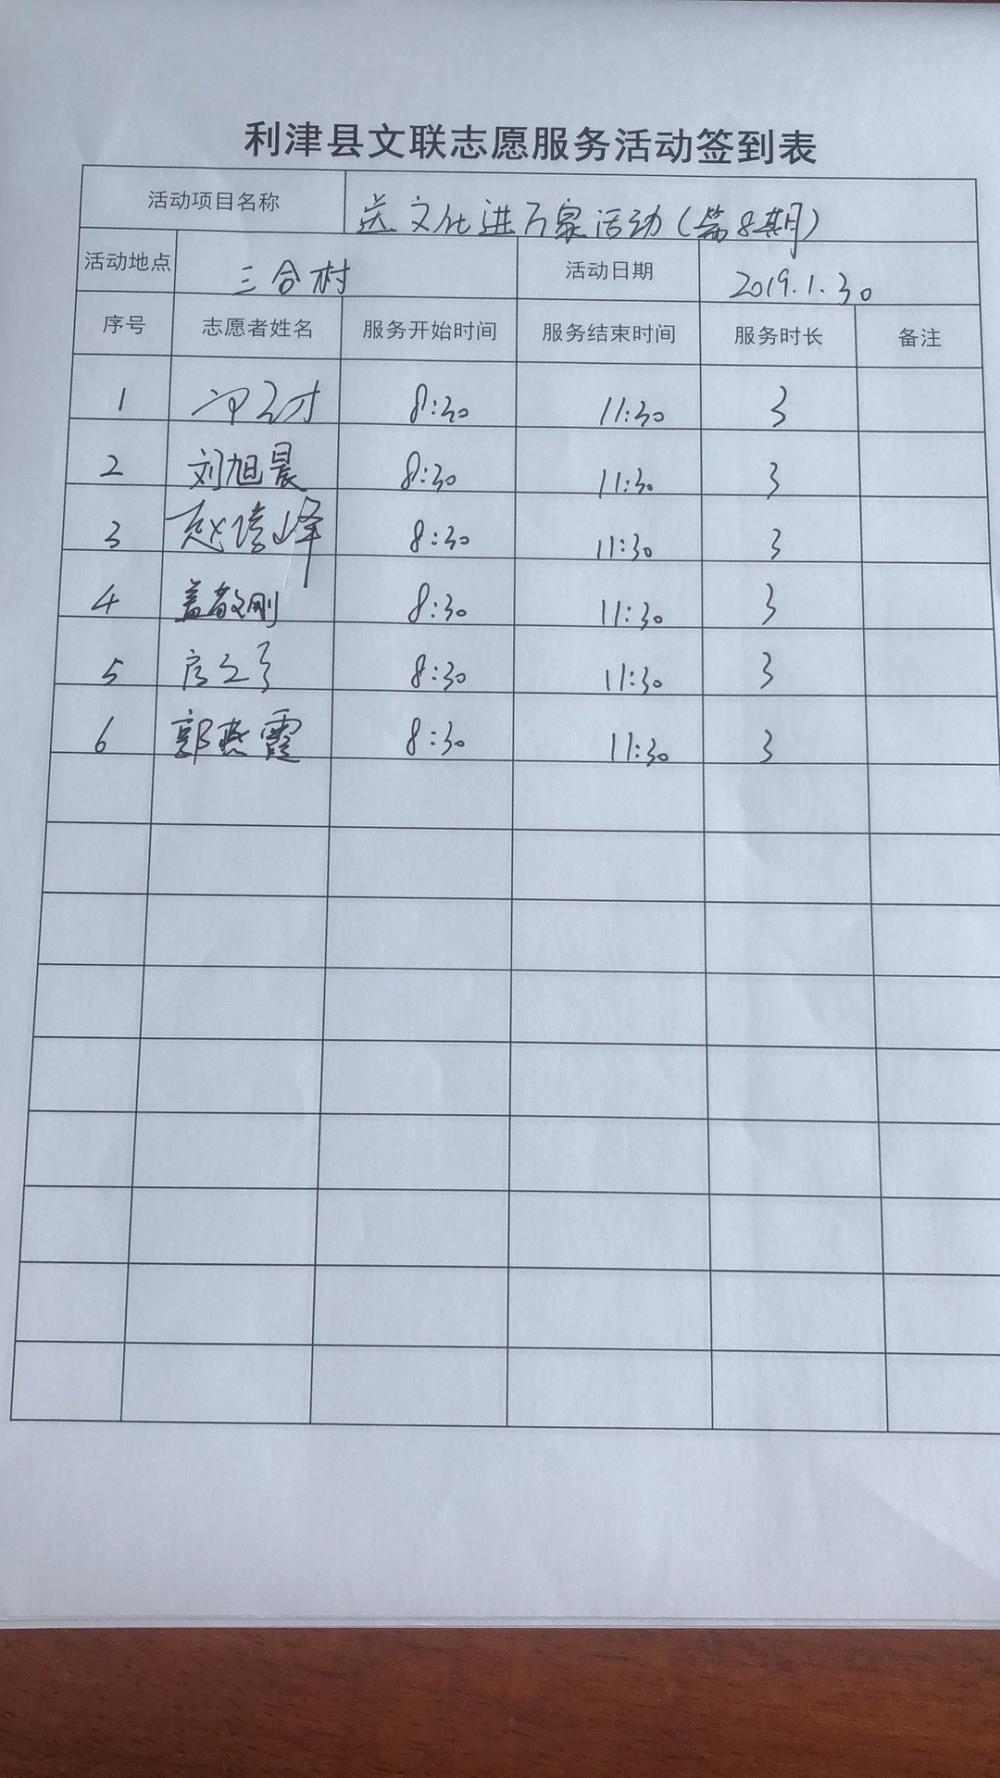 利津县文联志愿服务活动签到表
活动项目名称 送文化进万家活动(第8期)
活动地点 三合村 活动日期 2019.1.30
序号 志愿者姓名 服务开始时间 服务结束时间 服务时长 备注
1 8:30 11:30 3
2 刘旭晨 8:30 11:30 3
3 赵 峰 8:30 11:30 3
4 盖敬刚 8:30 11:30 3
5 8:30 11:30 3
6 郭燕霞 8:30 11:30 3